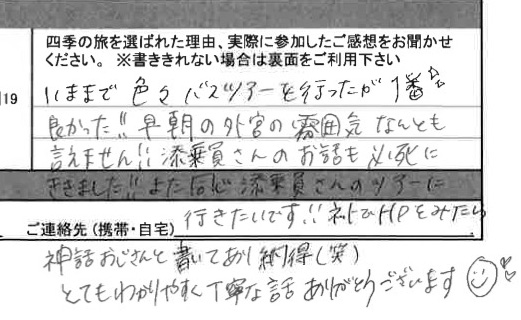 四季の旅を選ばれた理由、実際に参加したご感想をお聞かせ
ください。 ※書ききれない場合は裏面をご利用下さい
19
いままで 色々 バスツアーを行ったが 1番☆
良かった!! 早朝の外宮の雰囲気 なんとも
言えません!! 添乗員さんのお話も必死に
ききました!! また同じ添乗員さんのツアーに
ご連絡先(携帯・自宅) 行きたいです!! ネットでHPをみたら
神話おじさんと書いてあり納得(笑)
とてもわかりやすく丁寧な話 ありがとうございます